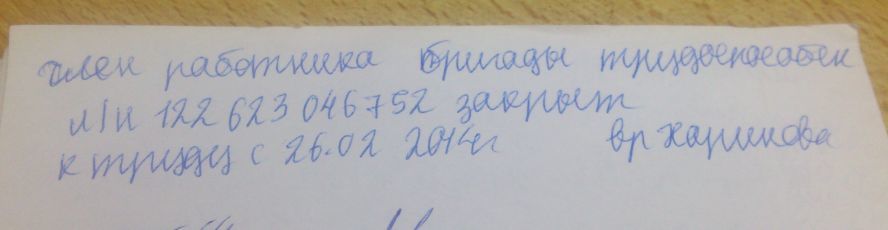 член работника бригады трудоспособен
л/н 122 623 046752 закрыт
к труду с 26.02 2014г вр Харикова